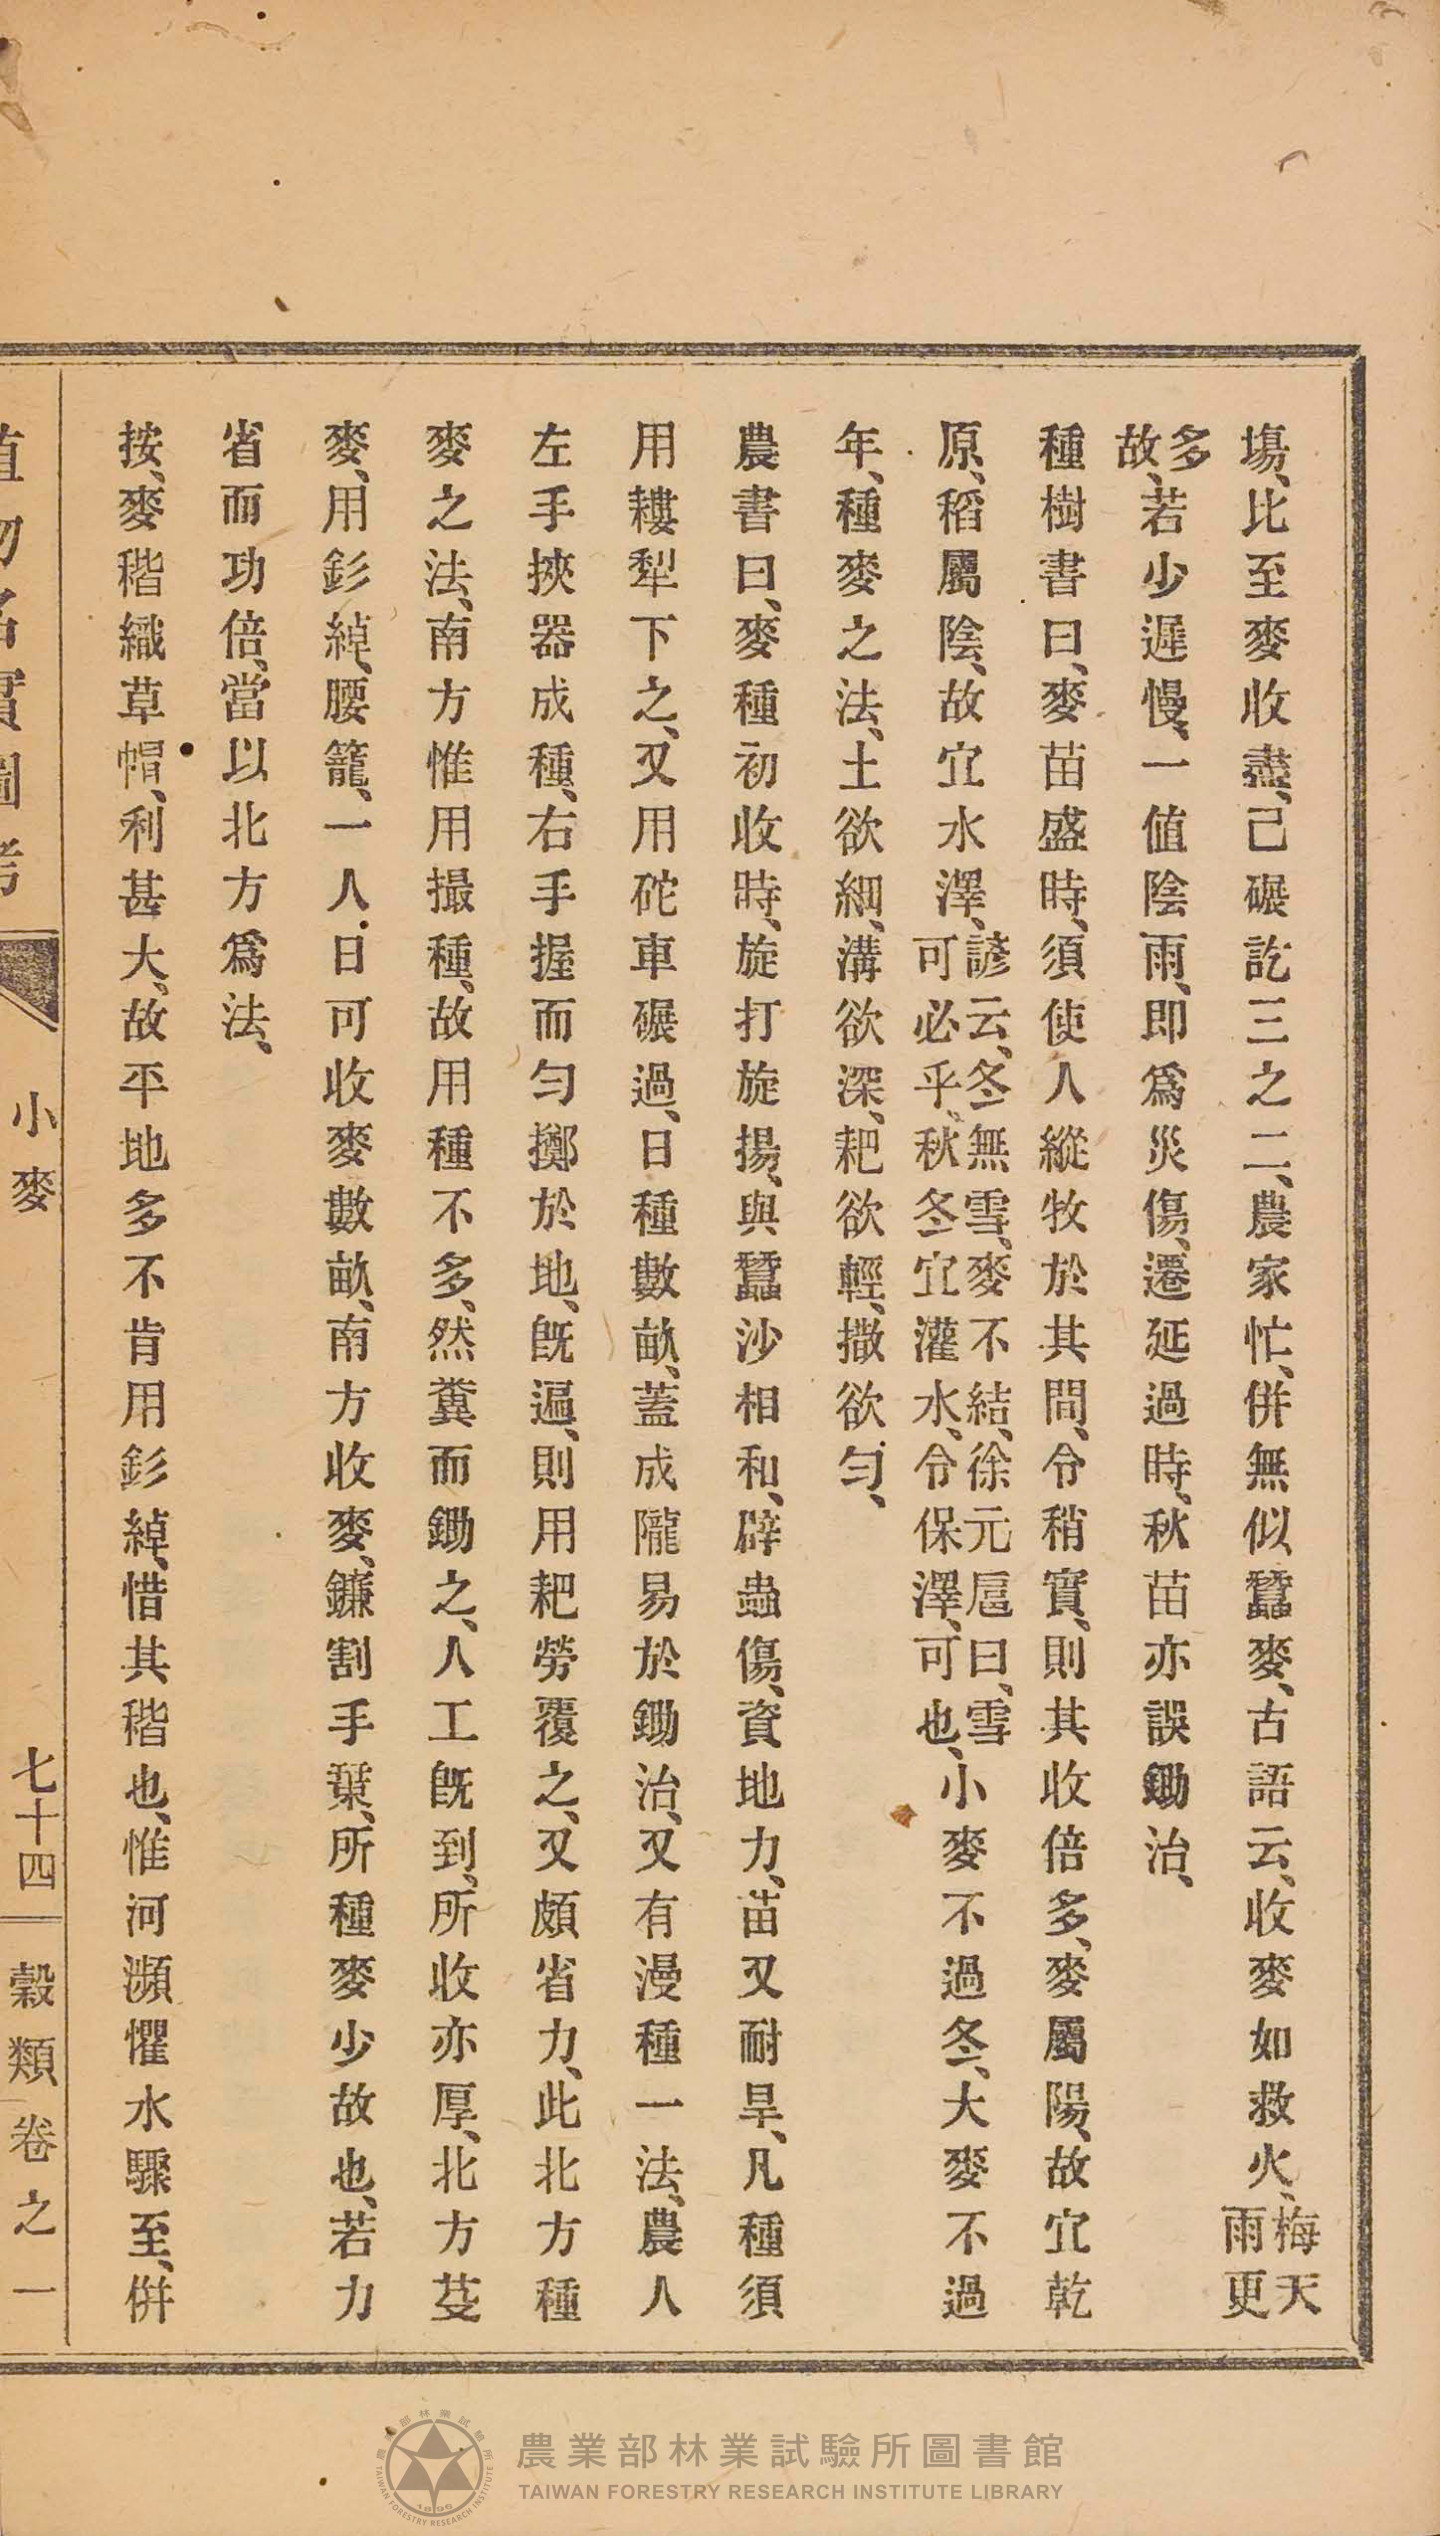 塲、比至麥收盡、己碾訖三之二、農家忙、併無似蠶麥、古語云、收麥如救火、梅天雨更
多故、若少遲慢、一値陰雨、卽爲災傷、遷延過時、秋苗亦誤鋤治、
種樹書曰、麥苗盛時、須使人縱牧於其間、令稍實、則其收倍多、麥屬陽、故宜乾
原、稻屬陰、故宜水澤、諺云、冬無雪、麥不結、徐元扈曰、雪可必乎、秋冬宜灌水、令保澤、可也、小麥不過冬、大麥不過
年、種麥之法、土欲細、溝欲深、耙欲輕、撒欲勻、
農書曰、麥種初收時、旋打旋揚、與蠶沙相和、辟蟲傷、資地力、苗又耐旱、凡種須
用耬犁下之、又用砣車碾過、日種數畝、蓋成隴易於鋤治、又有漫種一法、農人
左手挾器成種、右手握而勻擲於地、旣遍、則用耙勞覆之、又頗省力、此北方種
麥之法、南方惟用撮種、故用種不多、然糞而鋤之、人工旣到、所收亦厚、北方芟
麥、用釤綽、腰籠、一人日可收麥數畝、南方收麥、鐮割手葉、所種麥少故也、若力
省而功倍、當以北方爲法、
按、麥稭織草帽、利甚大、故平地多不肯用釤綽、惜其稭也、惟河濒懼水驟至、併
植物名實圖考 小麥 七十四 穀類卷之一
農業部林業試驗所圖書館
TAIWAN FORESTRY RESEARCH INSTITUTE LIBRARY
農業部林業試驗所
TAIWAN FORESTRY RESEARCH INSTITUTE
1896